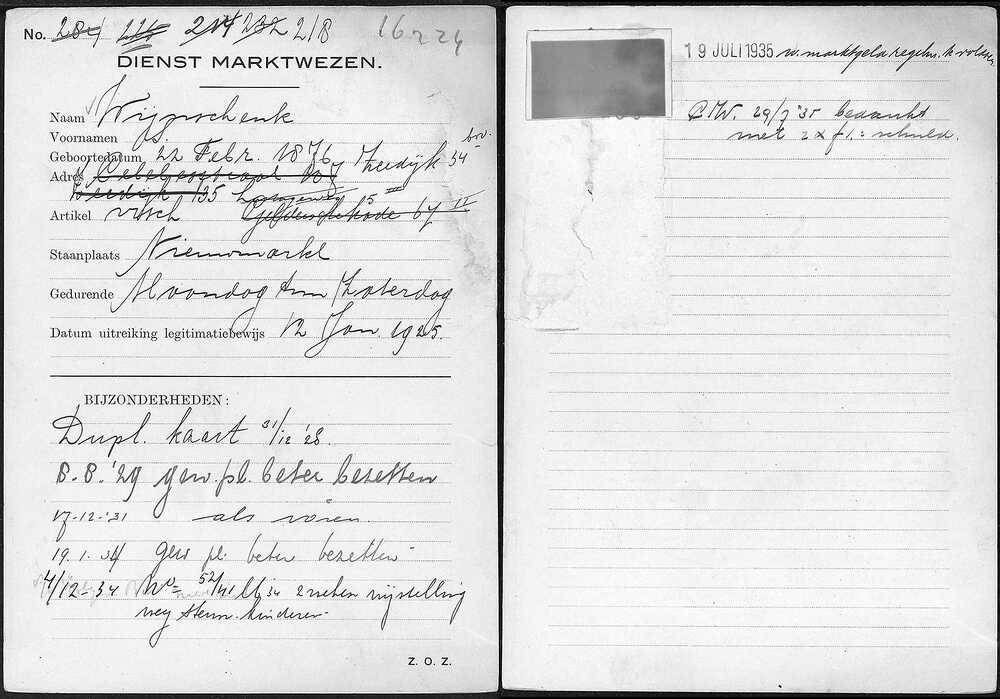 No. 284 226 214 232 218 16224
DIENST MARKTWEZEN.
Naam Wijnschenk
Voornamen Js.
Geboortedatum 22 Febr. 1876 Zeedijk 54 bov.
Adres
Zeedijk 135
Artikel visch Geldersche kade 67 II
Staanplaats Nieuwmarkt
Gedurende Maandag t/m Zaterdag
Datum uitreiking legitimatiebewijs 12 Jan. 1925.
BIJZONDERHEDEN:
Dupl. kaart 31/12 '28.
8-8-'29 gew. pl. beter bezetten
17-12-'31 als voren.
19.1.34 gew pl. beter bezetten
4/12-34 No 52/41 34 2 weken vrijstelling
weg. kinderen
Z. O. Z.
19 JULI 1935 w. marktgeld regelm. te vold.
29/7 '35 bedankt
met 2 x f 1.= schuld.